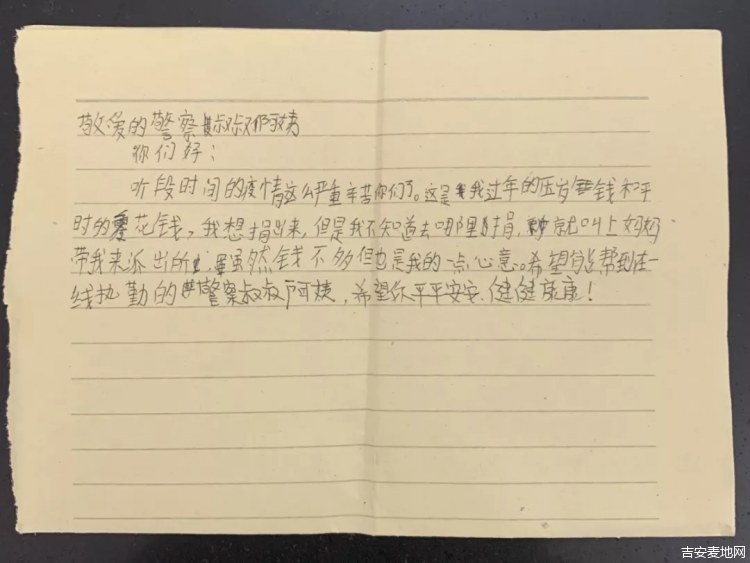 敬爱的警察叔叔阿姨
你们好:
听段时间的疫情这么严重辛苦你们了。这是我过年的压岁钱和平
时的零花钱,我想捐出来,但是我不知道去哪里捐,就叫上妈妈
带我来派出所,虽然钱不多但也是我的一点心意。希望能帮到在一
线执勤的警察叔叔阿姨,希望你平平安安,健健康康!
吉安麦地网